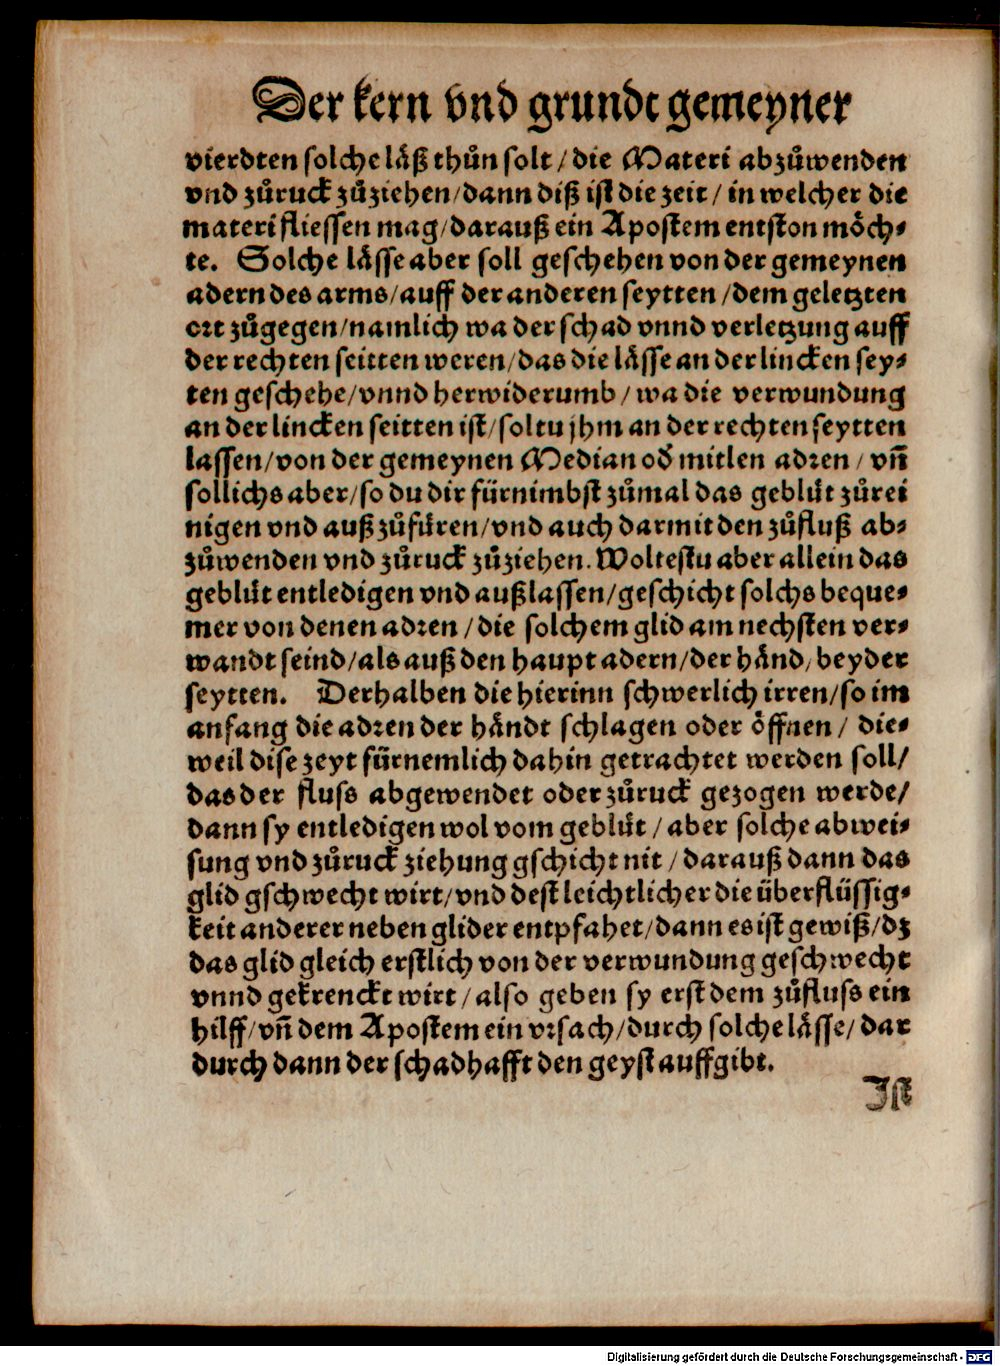 Der kern vnd grundt gemeyner
vierdten solche läß thůn solt / die Materi abzůwenden
vnd zůruck zůziehen / dann diß ist die zeit / in welcher die
materi fliessen mag / darauß ein Apostem entston möch⸗
te. Solche lässe aber soll geschehen von der gemeynen
adern des arms / auff der anderen seytten / dem geletzten
ort zůgegen / namlich wa der schad vnnd verletzung auff
der rechten seitten weren / das die lässe an der lincken sey⸗
ten geschehe / vnnd herwiderumb / wa die verwundung
an der lincken seitten ist / soltu jhm an der rechten seytten
lassen / von der gemeynen Median od̕ mitlen adꝛen / vñ
sollichs aber / so du dir fürnimbst zůmal das geblüt zůrei
nigen vnd auß zůfüren / vnd auch darmit den zůfluß ab⸗
zůwenden vnd zůruck zůziehen. Woltestu aber allein das
geblüt entledigen vnd außlassen / geschicht solchs beque⸗
mer von denen adꝛen / die solchem glid am nechsten ver⸗
wandt seind / als auß den haupt adern / der händ / beyder
seytten. Derhalben die hierinn schwerlich irren / so im
anfang die adꝛen der händt schlagen oder öffnen / die⸗
weil dise zeyt fürnemlich dahin getrachtet werden soll /
das der fluss abgewendet oder zůruck gezogen werde /
dann sy entledigen wol vom geblüt / aber solche abwei⸗
sung vnd zůruck ziehung gschicht nit / darauß dann das
glid gschwecht wirt / vnd dest leichtlicher die überflüssig⸗
keit anderer neben glider entpfahet / dann es ist gewiß / dz
das glid gleich erstlich von der verwundung geschwecht
vnnd gekrenckt wirt / also geben sy erst dem zůfluss ein
hilff / vñ dem Apostem ein vꝛsach / durch solche lässe / dar
durch dann der schadhafft den geyst auffgibt.
Ist
Digitalisierung gefördert durch die Deutsche Forschungsgemeinschaft - DFG